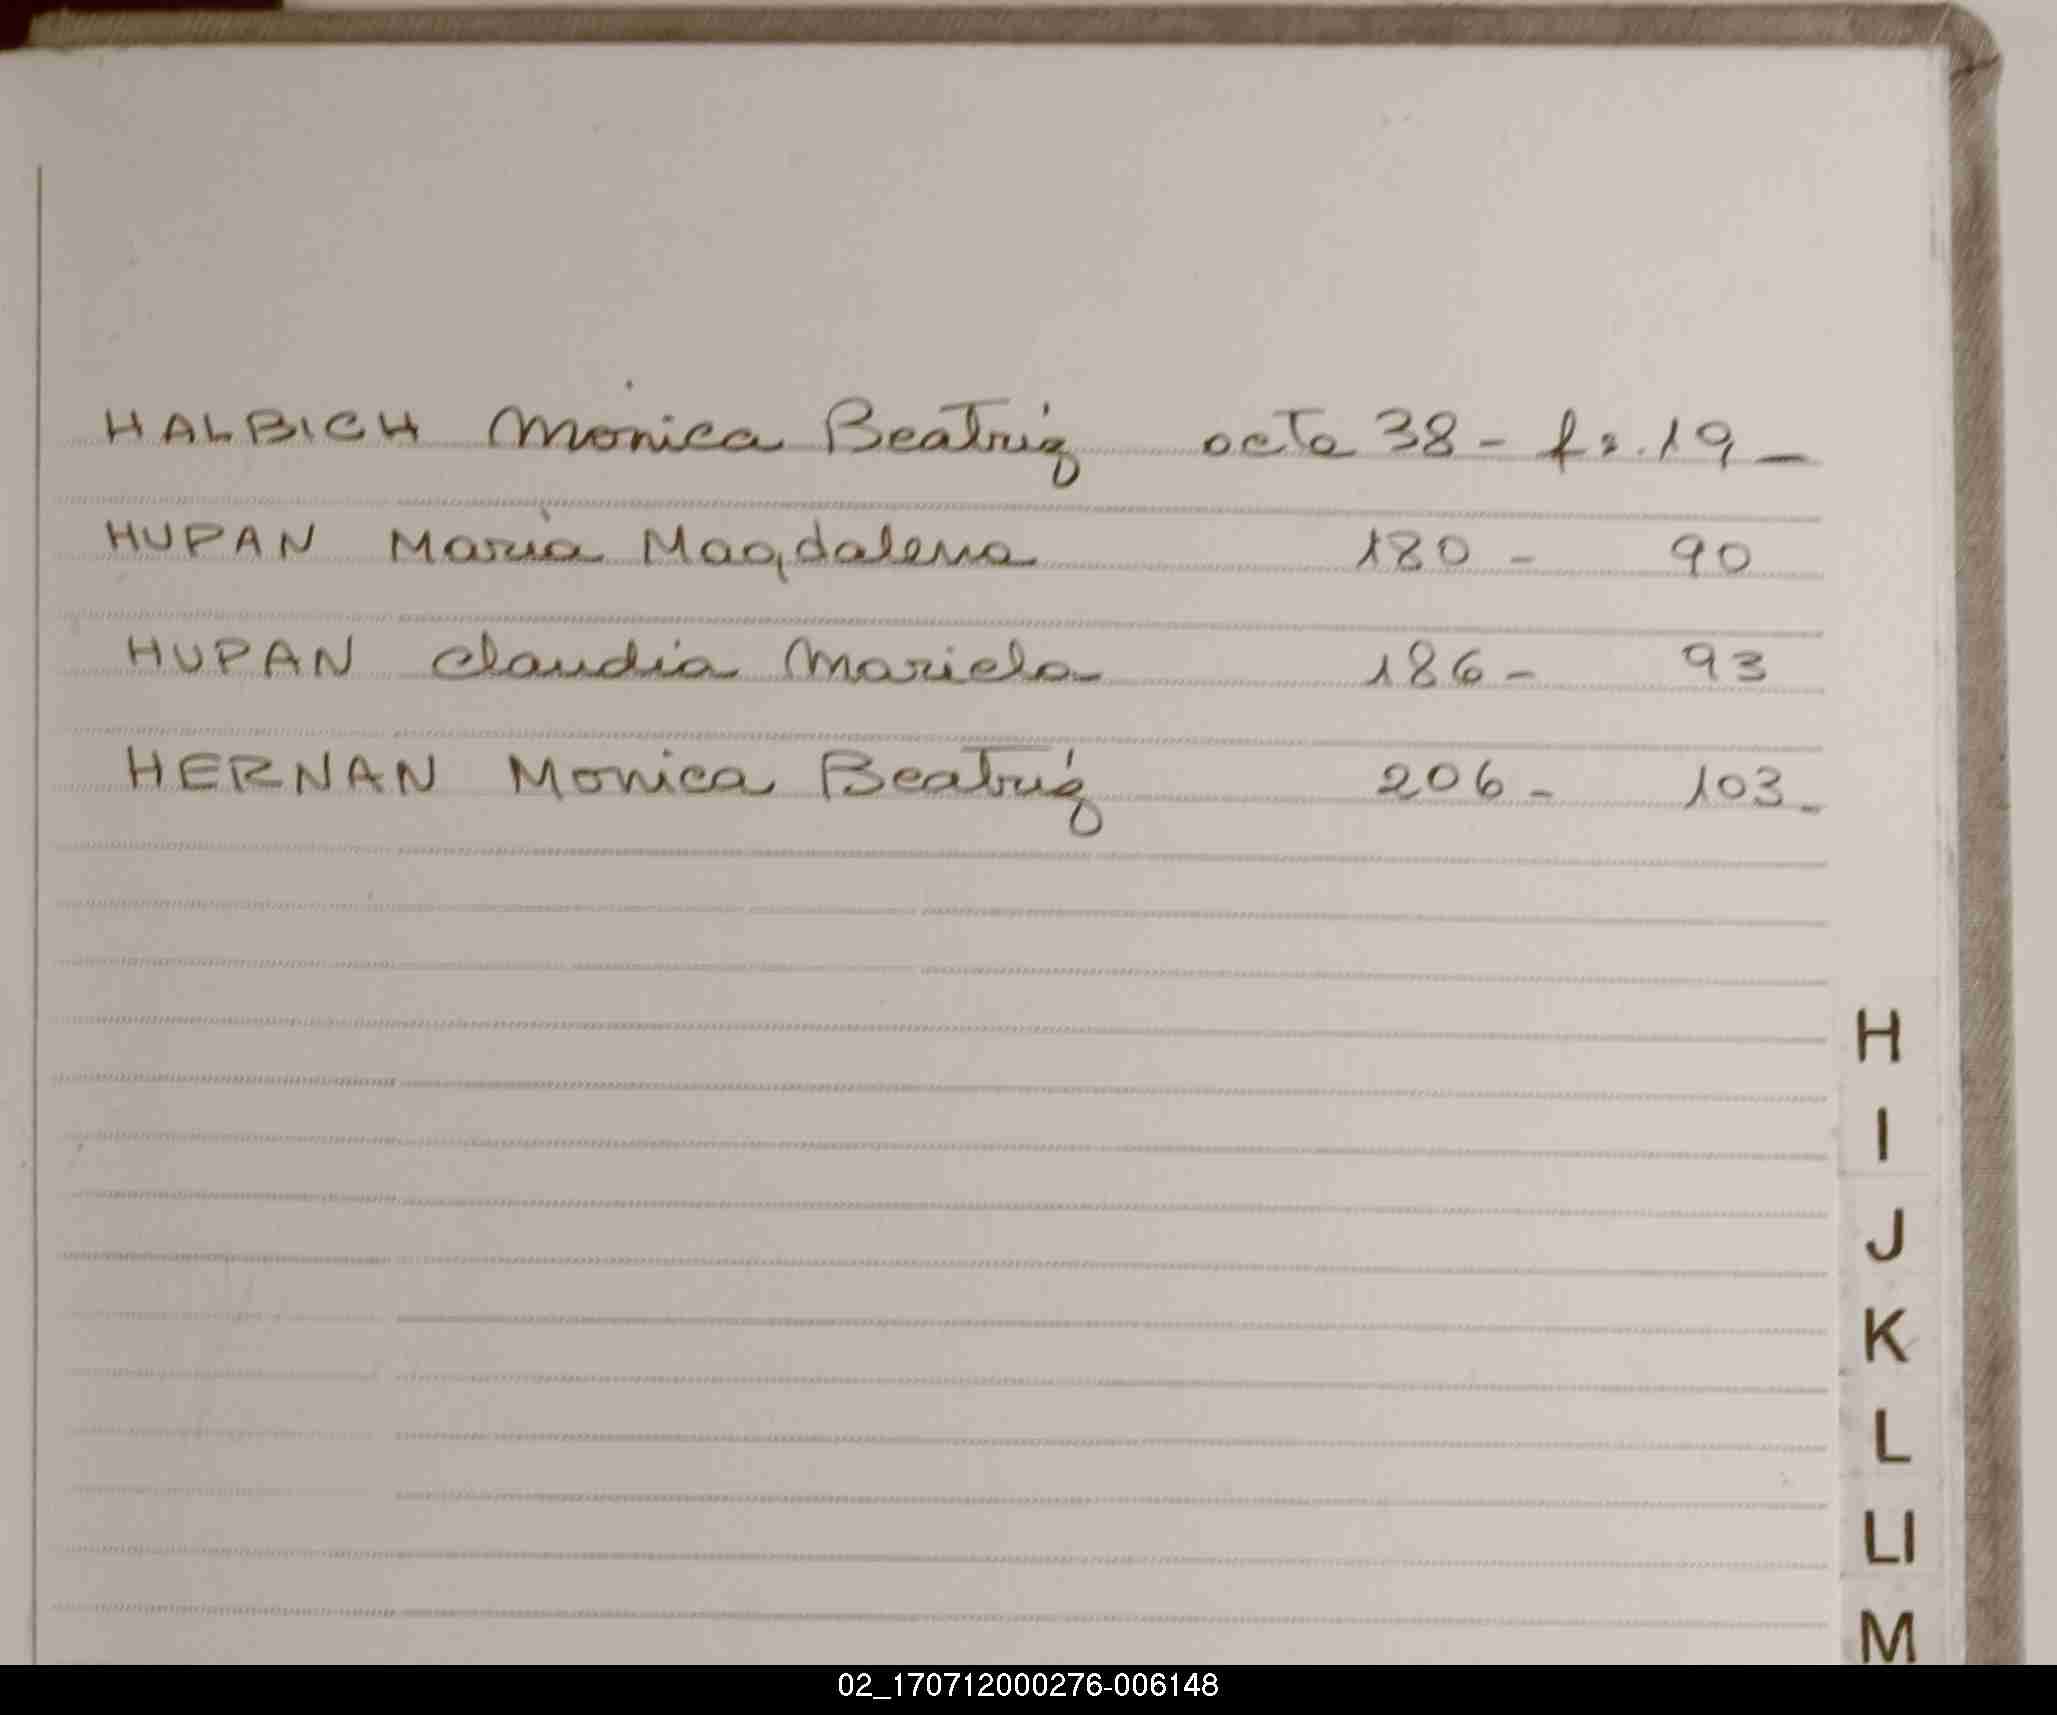 HALBICH Mónica Beatriz acta 38 - fs. 19 -
HUPAN María Magdalena 180 - 90
HUPAN Claudia Mariela 186 - 93
HERNAN Monica Beatriz 206 - 103 -
H
I
J
K
L
Ll
M
02_170712000276-006148